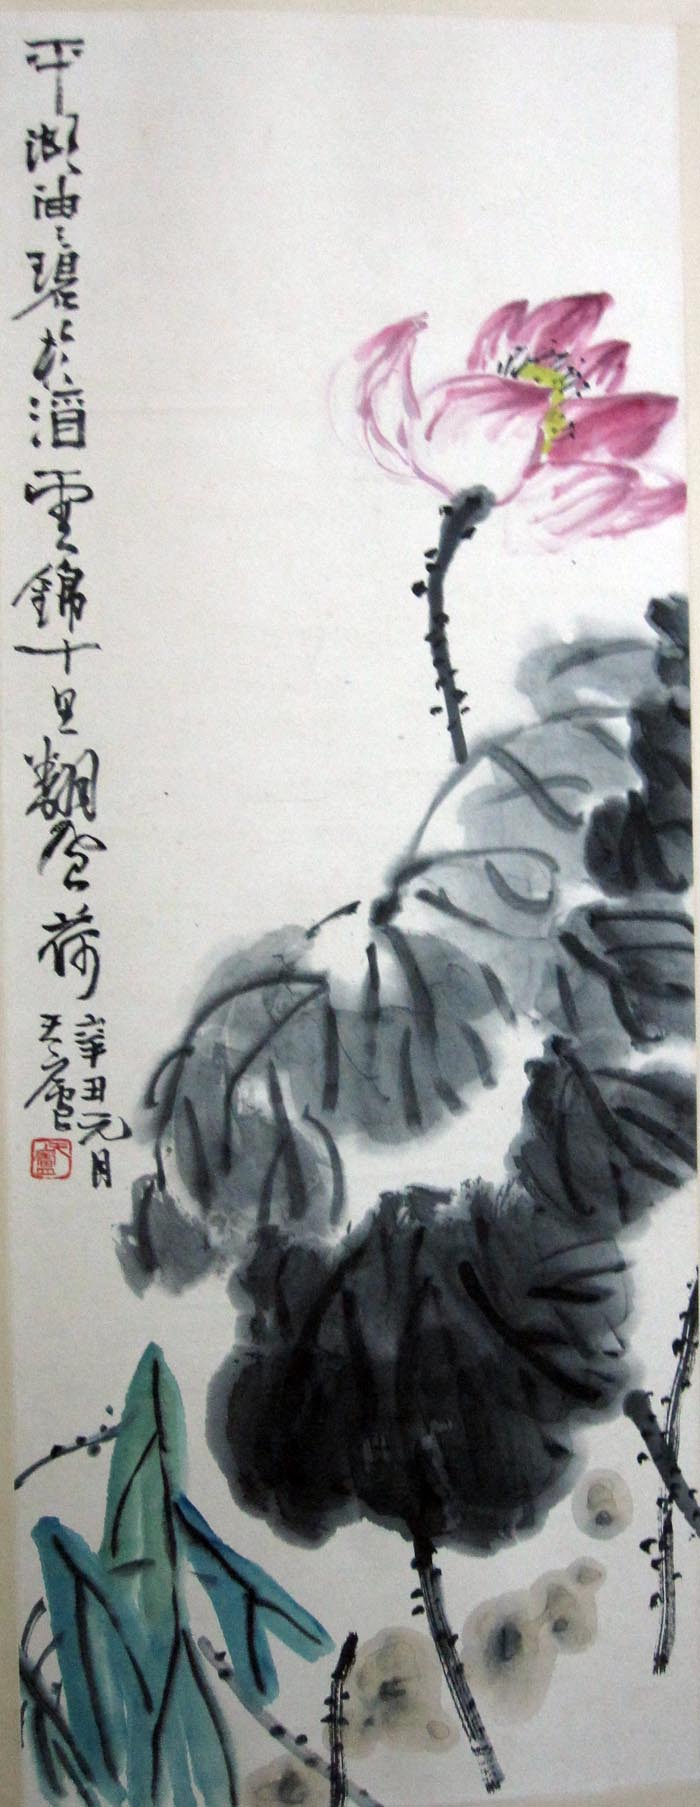 平湖油〻碧於酒雲錦十里翻風荷
辛丑元月
天廬